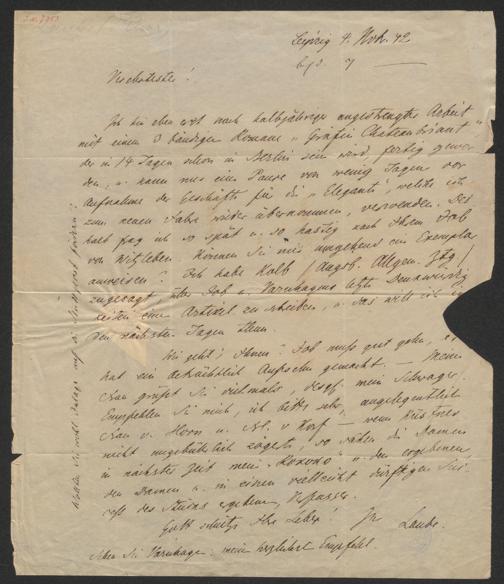 Leipzig 4. Nov. 42
Verehrtester!
Ich bin eben erst nach halbjähriger angestrengter Arbeit
mit einem 3 bändigen Romane „Gräfin Chateaubriant"
der in 14 Tagen schon in Berlin sein wird, fertig gewor
den, u. kann nur eine Pause von wenig Tagen vor
Aufnahme der Geschäfte für die „Elegante" welche ich
zum neuen Jahre wieder übernommen, verwenden. Des
halb frag ich so spät u. so hastig nach Ihrem Job
von Witzleben. Können Sie mir umgehend ein Exemplar
anweisen? Ich habe Kolb /Augsb. Allgem. Ztg/
zugesagt über Job u. Varnhagens letzte Denkwürdig
keiten eine Artikel zu schreiben, u. das will ich in
den nächsten Tagen thun.
Wie geht's Ihnen? Job muß gut gehn, er
hat ein beträchtlich Aufsehen gemacht. — Meine
Frau grüßt Sie vielmals, desgl. mein Schwager.
Empfehlen Sie mich, ich bitte sehr, angelegentlich
Frau v. Horn u. v. Korf — wenn
nicht ungebührlich zögert, so rathen die Damen
in nächster Zeit mein „Rokoko" u. den ergebenen
den Damen u. in einem vielleicht dürftigen
des ergebene Verfasser.
Gott schütze Ihr Leben! Ihr Laube.
Sehen Sie Varnhagen: meine herzlichst Empfehl.